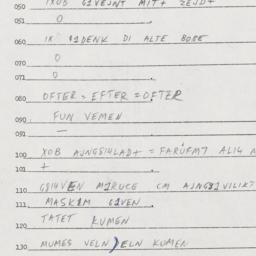 050 IXOB G1VEJNT MIT+ ZEJD+
051 O
060 IX G1DENK DI ALTE BOBE
070 O
071 O
080 OFTER = EFTER = OFTER
090 FUN VEMEN
091 —
100 XOB AJNG814LAD+ = FARUFM7 ALI4
+
110 G814VEN M1RUCE CM AJNG81VILIK7
111 MASKIM G1VEN
120 TATET KUMEN
130 MUMES VELN) ELN KUMEN